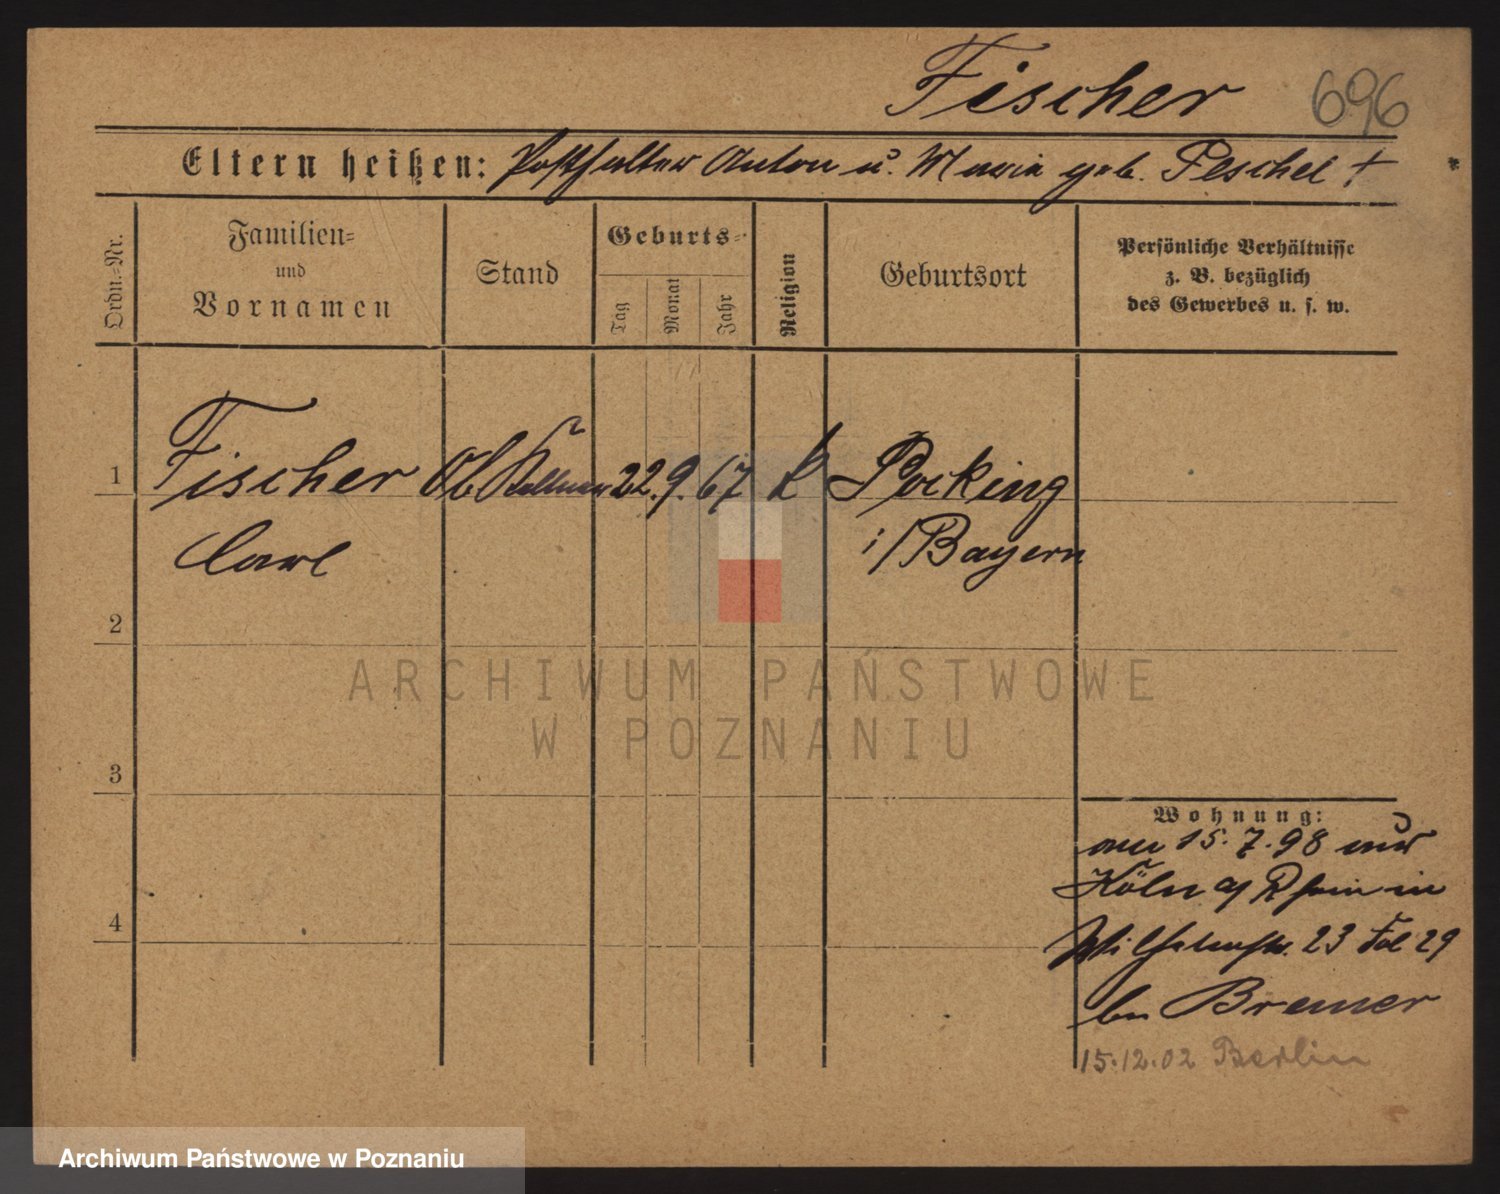 Fischer 696
Eltern heißen: Posthalter Anton u. Maria geb. Peschel +
Ordn.-Nr.
Familien-
und
Vornamen
Stand
Geburts-
Tag
Monat
Jahr
Religion
Geburtsort
Persönliche Verhältnisse
z. B. bezüglich
des Gewerbes u. s. w.
1 Fischer Ob Kellner 22. 9. 67 k Pocking
Carl i/Bayern
2
3
4
Wohnung:
15. 7. 98
Köln a/ Rhein in
Wilhelmstr. 23 29
Bremer
15.12.02 Berlin
ARCHIWUM PAŃSTWOWE
W POZNANIU
Archiwum Państwowe w Poznaniu